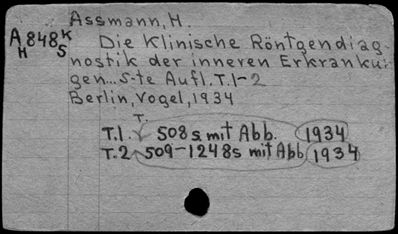 Assmann, H.
A 848 K Die Klinische Röntgendiag
H S nostik der inneren Erkrankun
gen... 5-te Aufl. T.1-2
Berlin, Vogel, 1934
T.
T.1. 508 s mit Abb. 1934
T.2 509-1248 s mit Abb 1934